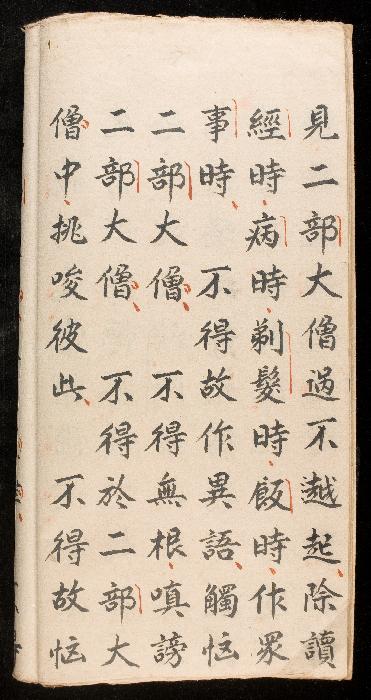 見二部大僧過不越起除讀
經時病時剃髮時飯時作衆
事時 不得故作異語觸惱
二部大僧 不得無根嗔謗
二部大僧 不得於二部大
僧中挑唆彼此 不得故惱